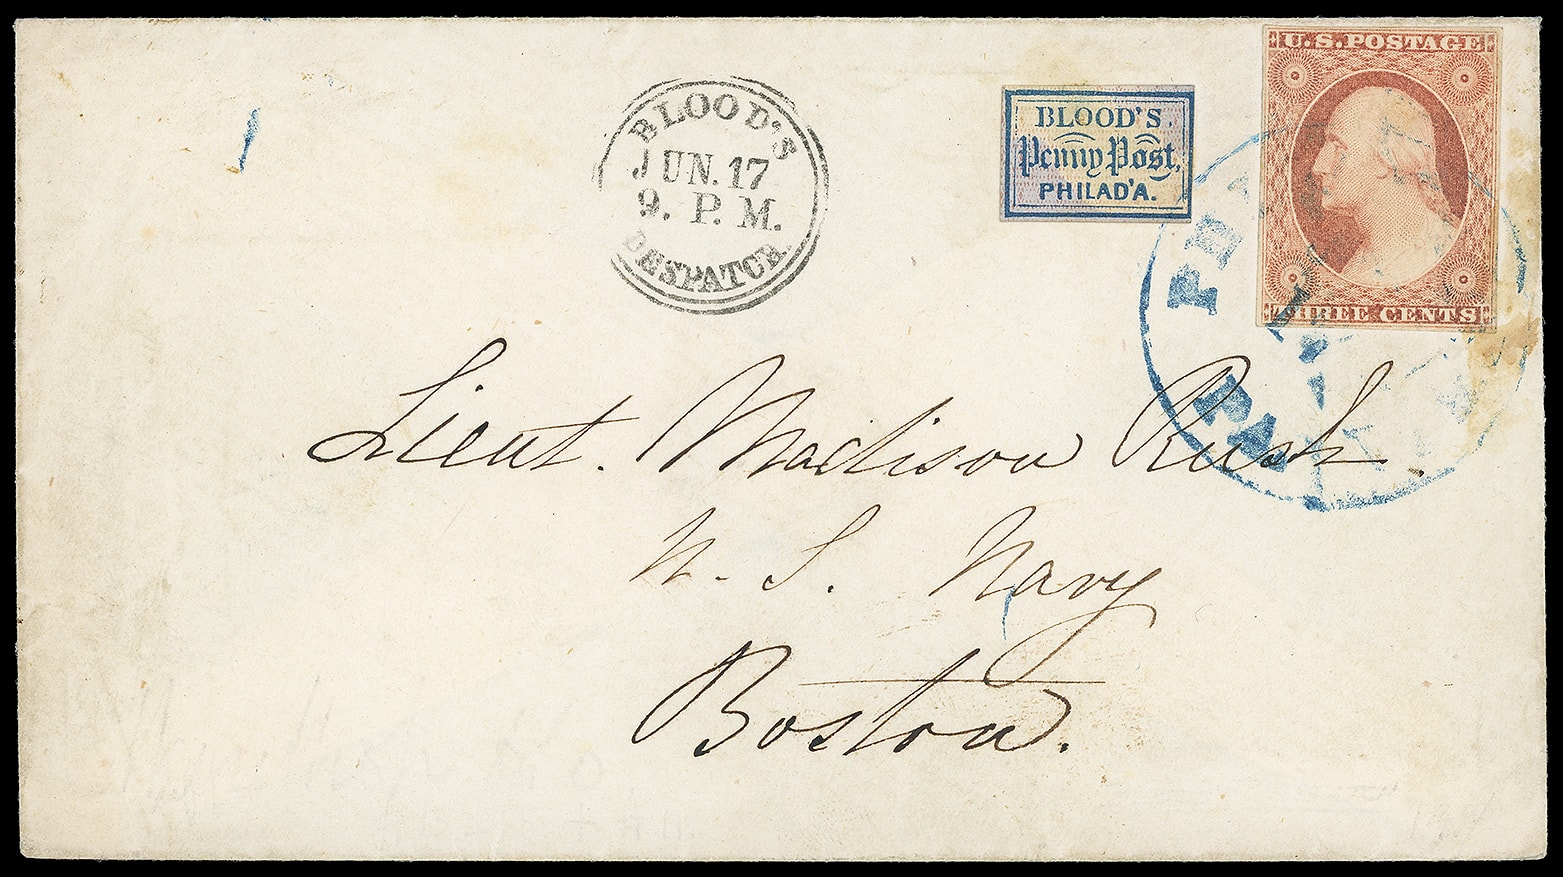 BLOOD'S
JUN. 17
9. P. M.
DESPATCH.
BLOOD'S
Penny Post,
PHILAD'A.
U.S. POSTAGE
THREE CENTS
Lieut. Madison Rush.
U. S. Navy
Boston.